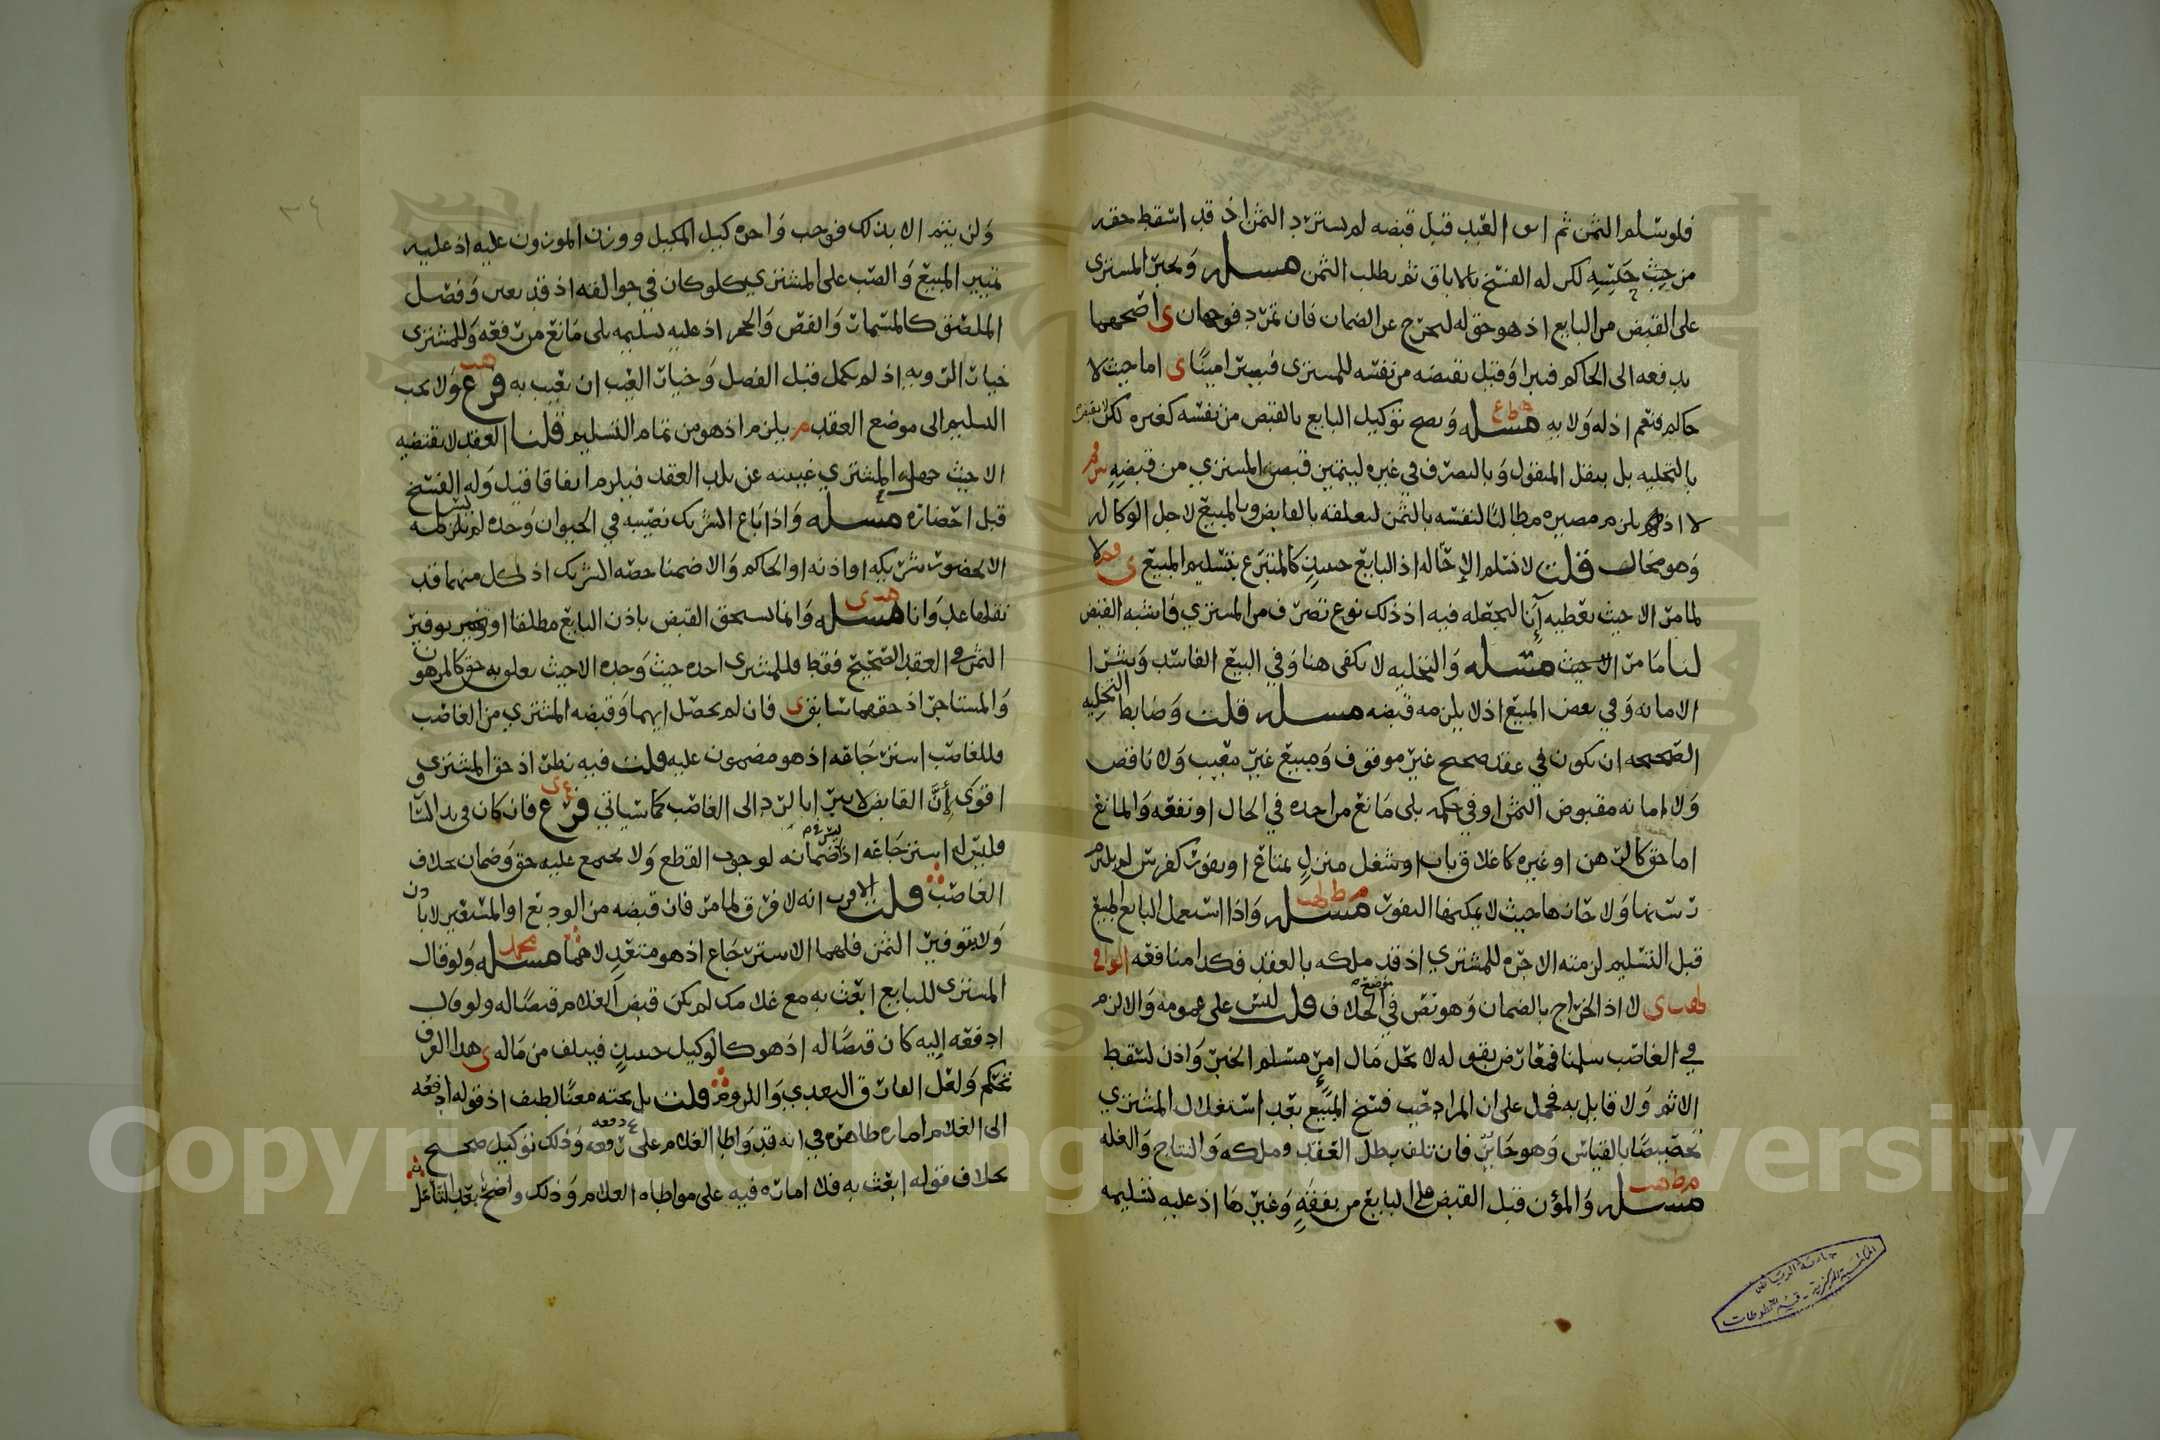 فلو سلم الثمن ثم ابق العبد قبل قبضه لم يسترد الثمن اذ قد اسقط حقه
من حيث حبسه لكن له الفسخ بالاباق ثم يطلب الثمن مسله ويجبر المشتري
على القبض من البايع اذ هو حق له ليخرج عن الضمان فان تمرد فوجهان ى اصحهما
يدفعه الى الحاكم فيبرا وقيل يقبضه من نفسه للمشتري فيصير امينا ى اما حيث لا
حاكم فنعم اذ له ولايه مسله ويصح توكيل البايع بالقبض من نفسه كغيره لكن لا يقبض
بالتخليه بل بنقل المنقول وبالتصرف في غيره ليتميز قبض المشتري من قبضه
لا اذ يلزم مصيره مطالبا لنفسه بالثمن لتعلقه بالقابض وبالمبيع لاجل الوكاله
وهو محال قلت لا نسلم الاحاله اذ البايع حينئذ كالمتبرع بتسليم المبيع ى ولا
لما مر الا حيث يعطيه اناء ليجعله فيه اذ ذلك نوع تصرف من المشتري فاشبه القبض
لنا ما مر مسله والتخليه لا تكفي هنا وفي البيع الفاسد وبشرا
الامانه وفي بعض المبيع اذ لا يلزمه قبضه مسله قلت وضابط التخليه
الصحيحه ان يكون في عقد صحيح غير موقوف ومبيع غير معيب ولا ناقص
ولا امانه مقبوض الثمن او في حكمه بلى مانع من اخذه في الحال او نفعه والمانع
اما حق كالرهن او غيره كاغلاق باب او شغل منزل بمتاع او نفور كفرس لم يلزم
رسنها ولا خانها حيث لا يمكنها النفور مسله واذا استعمل البايع المبيع
قبل التسليم لزمته الاجره للمشتري اذ قد ملكه بالعقد فكذا منافعه الوافي
ى لا اذ الخراج بالضمان وهو نص في موضع الخلاف قلت ليس على عمومه والا لزم
في الغاصب سلمنا فمعارض بقوله لا يحل مال امرئ مسلم الخبر واذن لسقط
الاثم ولا قايل به فحمل على ان المراد عيب فسخ المبيع بعد استغلال المشتري
تخصيصا بالقياس وهو جايز فان تلف بطل العقد وملكه والنتاج والغله
مسله والمؤن قبل القبض على البايع من نفقه وغيرها اذ عليه تسليمه
ولن يتم الا بذلك فوجب واجره كيل المكيل ووزن الموزون عليه اذ عليه
تمييز المبيع والصب على المشتري كلو كان في جوالقه اذ قد تعين وفصل
الملصق كالمسمار والفص والحجر اذ عليه تسليمه بلى مانع من نفعه وللمشتري
خيار الرويه اذ لم يكمل قبل الفصل وخيار العيب ان تعيب به فرع ولا يجب
التسليم الى موضع العقد م يلزم اذ هو من تمام التسليم قلنا العقد لا يقتضيه
الا حيث جهل المشتري غيبته عن بلد العقد فيلزم اتفاقا قيل وله الفسخ
قبل احضاره مسله واذا باع الشريك نصيبه في الحيوان وحده لم يلزم تسليمه
الا بحضور شريكه او اذنه او الحاكم والا ضمنا حصه الشريك اذ لكل منهما قد
نقلها عدوانا مسله وانما يستحق القبض باذن البايع مطلقا او بتوفير
الثمن في العقد الصحيح فقط فللمشتري اخذه حيث وجده الا حيث تعلق به حق كالمرهون
والمستاجر اذ حقهما سابق ى فان لم يحصل ايهما وقبضه المشتري من الغاصب
فللغاصب استرجاعه اذ هو مضمون عليه قلت فيه نظر اذ حق المشتري
اقوى لان القابض لا يبرا بالرد الى الغاصب كما سياتي فرع فان كان في يد السارق
فليس له استرجاعه اذ ضمانه لوجوب القطع ولا يجتمع عليه حق وضمان بخلاف
الغاصب قلت الاقرب انه لا فرق لما مر فان قبضه من الوديع او المستعير لا باذن
ولا بتوفير الثمن فلهما الاسترجاع اذ هو متعد لا هما مسله ولو قال
المشتري للبايع ابعث به مع غلامك لم يكن قبض الغلام قبضا له ولو قال
ادفعه اليه كان قبضا له اذ هو كالوكيل حينئذ فيتلف من ماله ى هذا الفرق
تحكم ولعل الفارق التعدي واللزوم قلت بل تحته معنى لطيف اذ قوله ادفعه
الى الغلام اماره ظاهره في انه قد واطا الغلام على دفعه وذلك توكيل صحيح
بخلاف قوله ابعث به فلا اماره فيه على مواطاه الغلام وذلك واضح بعد التامل
جامعة الرياض
المكتبة المركزية - قسم المخطوطات
Copyright © King Saud University